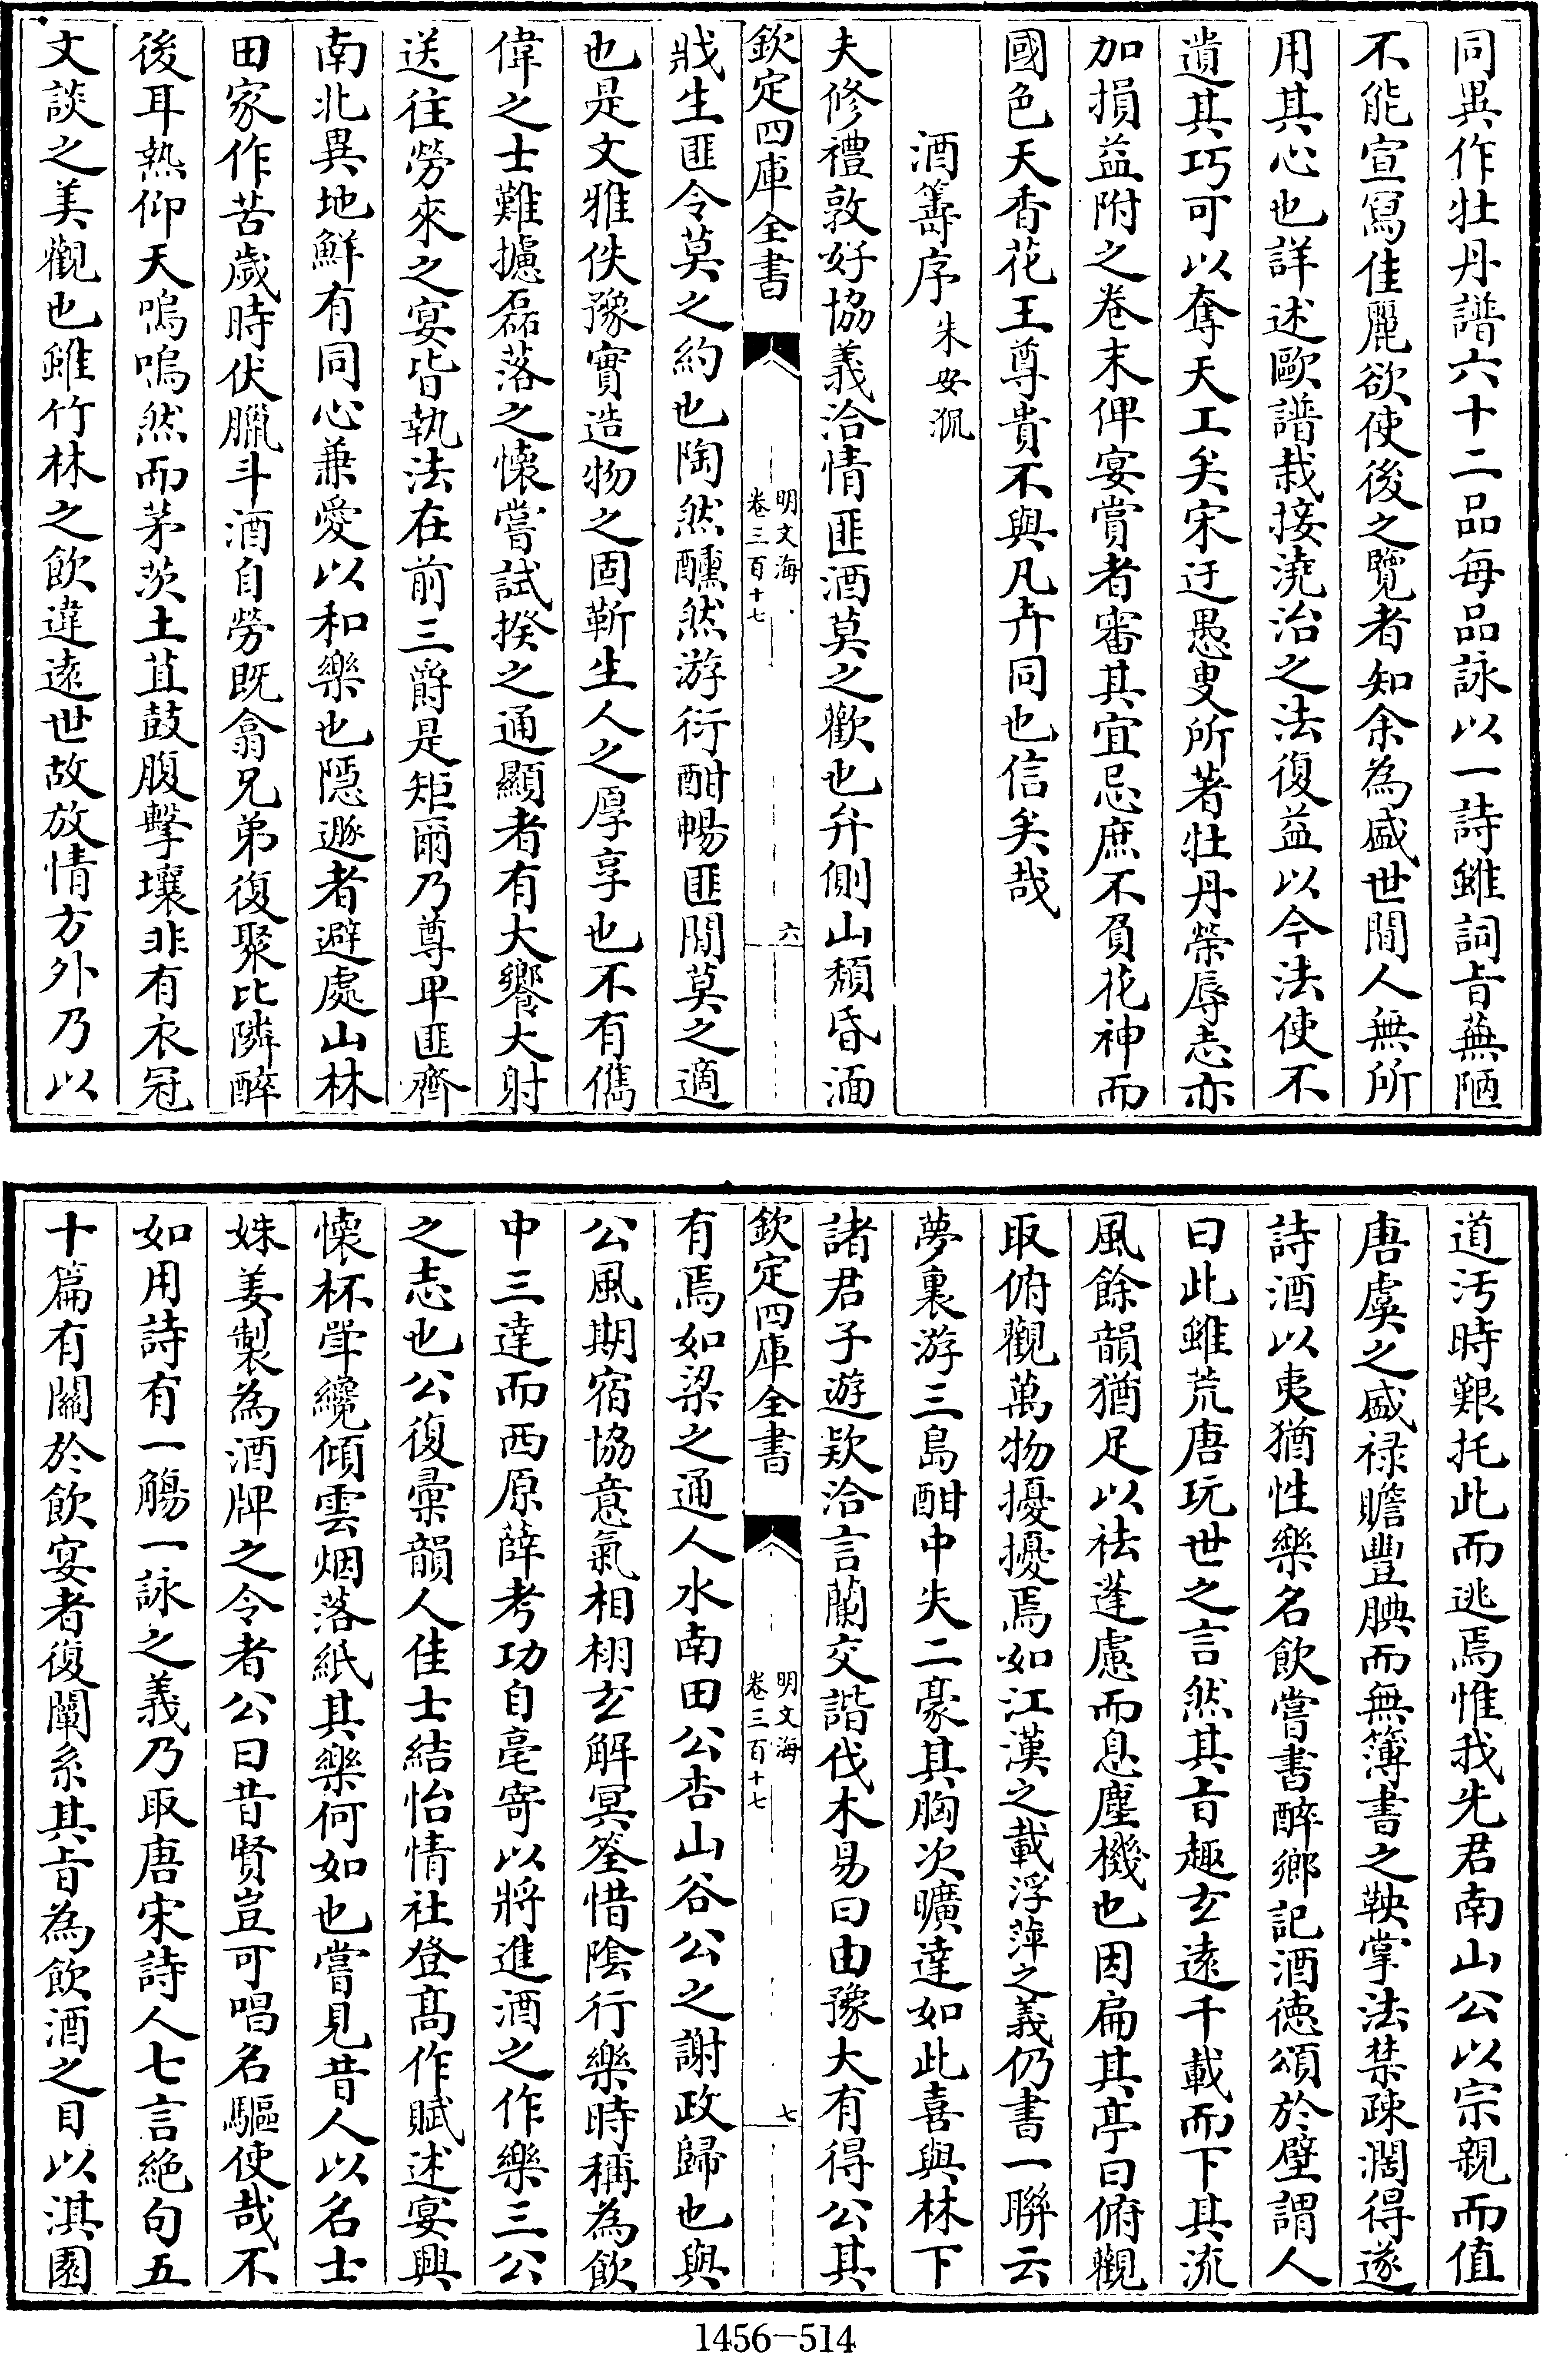 同異作牡丹譜六十二品每品詠以一詩雖詞旨蕪陋
不能宣寫佳麗欲使後之覽者知余為盛世閒人無所
用其心也詳述歐譜栽接澆治之法復益以今法使不
遺其巧可以奪天工矣宋迂愚叟所著牡丹榮辱志亦
加損益附之卷末俾宴賞者審其宜忌庶不負花神而
國色天香花王尊貴不與凡卉同也信矣哉
酒籌序朱安㳖
夫修禮敦好協義洽情匪酒莫之歡也弁側山頹昏湎
欽定四庫全書
明文海
卷三百十七
六
戕生匪令莫之約也陶然醺然游衍酣暢匪閒莫之適
也是文雅佚豫實造物之固靳生人之厚享也不有儁
偉之士難攄磊落之懷嘗試揆之通顯者有大饗大射
送往勞來之宴皆執法在前三爵是矩爾乃尊卑匪齊
南北異地鮮有同心兼愛以和樂也隱遯者避處山林
田家作苦歲時伏臘斗酒自勞既翕兄弟復聚比隣醉
後耳熱仰天嗚嗚然而茅茨土苴鼓腹擊壤非有衣冠
文談之美觀也雖竹林之飲違遠世故放情方外乃以
道汚時艱托此而逃焉惟我先君南山公以宗親而值
唐虞之盛祿贍豐腆而無簿書之鞅掌法禁疎濶得遂
詩酒以夷猶性樂名飲嘗書醉鄉記酒德頌於壁謂人
曰此雖荒唐玩世之言然其旨趣玄遠千載而下其流
風餘韻猶足以祛蓬慮而息塵機也因扁其亭曰俯觀
取俯觀萬物擾擾焉如江漢之載浮萍之義仍書一聯云
夢裏游三島酣中失二豪其胸次曠達如此喜與林下
諸君子遊欵洽言蘭交諧伐木易曰由豫大有得公其
欽定四庫全書
明文海
卷三百十七
七
有焉如梁之通人水南田公杏山谷公之謝政歸也與
公風期宿協意氣相栩玄解冥筌惜陰行樂時稱為飲
中三達而西原薛考功自亳寄以將進酒之作樂三公
之志也公復彙韻人佳士結怡情社登高作賦述宴興
懷杯斝纔傾雲烟落紙其樂何如也嘗見昔人以名士
姝姜製為酒牌之令者公曰昔賢豈可唱名驅使哉不
如用詩有一觴一詠之義乃取唐宋詩人七言絕句五
十篇有關於飲宴者復闡系其旨為飲酒之目以淇園
1456—514